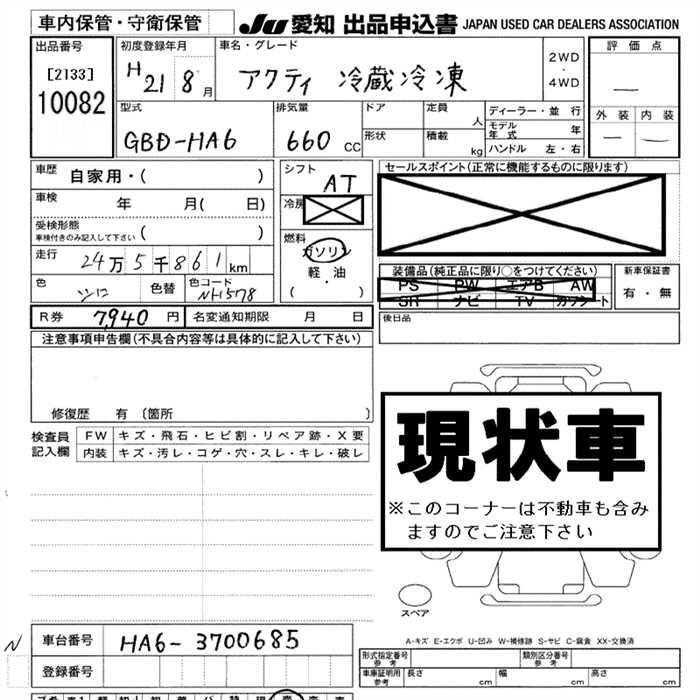 車内保管・守衛保管
JU 愛知 出品申込書 JAPAN USED CAR DEALERS ASSOCIATION
出品番号
[2133]
10082
初度登録年月
H 21 8 月
車名・グレード
アクティ 冷蔵冷凍
2WD
・
4WD
評価点
—
外装 内装
— —
型式
GBD-HA6
排気量
660 CC
ドア
形状
定員 人
積載 kg
ディーラー・並行
モデル年式 年
ハンドル 左・右
車歴 自家用・( )
車検 年 月( 日)
受検形態
車検付きのみ記入して下さい ( )
走行 24万5千861km
色
色替
色コード
NH578
シフト
AT
冷房
燃料
ガソリン
・
軽油
・
( )
セールスポイント(正常に機能するものに限ります)
装備品(純正品に限り○をつけてください)
PS PW エアB AW
SR ナビ TV カワシート
新車保証書
有・無
R券 7,940 円 名変通知期限 月 日
後日品
注意事項申告欄(不具合内容等は具体的に記入して下さい)
修復歴 有〔箇所 〕
検査員記入欄
FW キズ・飛石・ヒビ割・リペア跡・X要
内装 キズ・汚レ・コゲ・穴・スレ・キレ・破レ
現状車
※このコーナーは不動車も含み
ますのでご注意下さい
スペア
A-キズ E-エクボ U-凹み W-補修跡 S-サビ C-腐食 XX-交換済
N
車台番号 HA6-3700685
登録番号
形式指定番号
参考
類別区分番号
参考
車庫証明用
参考
長さ cm 幅 cm 高さ cm